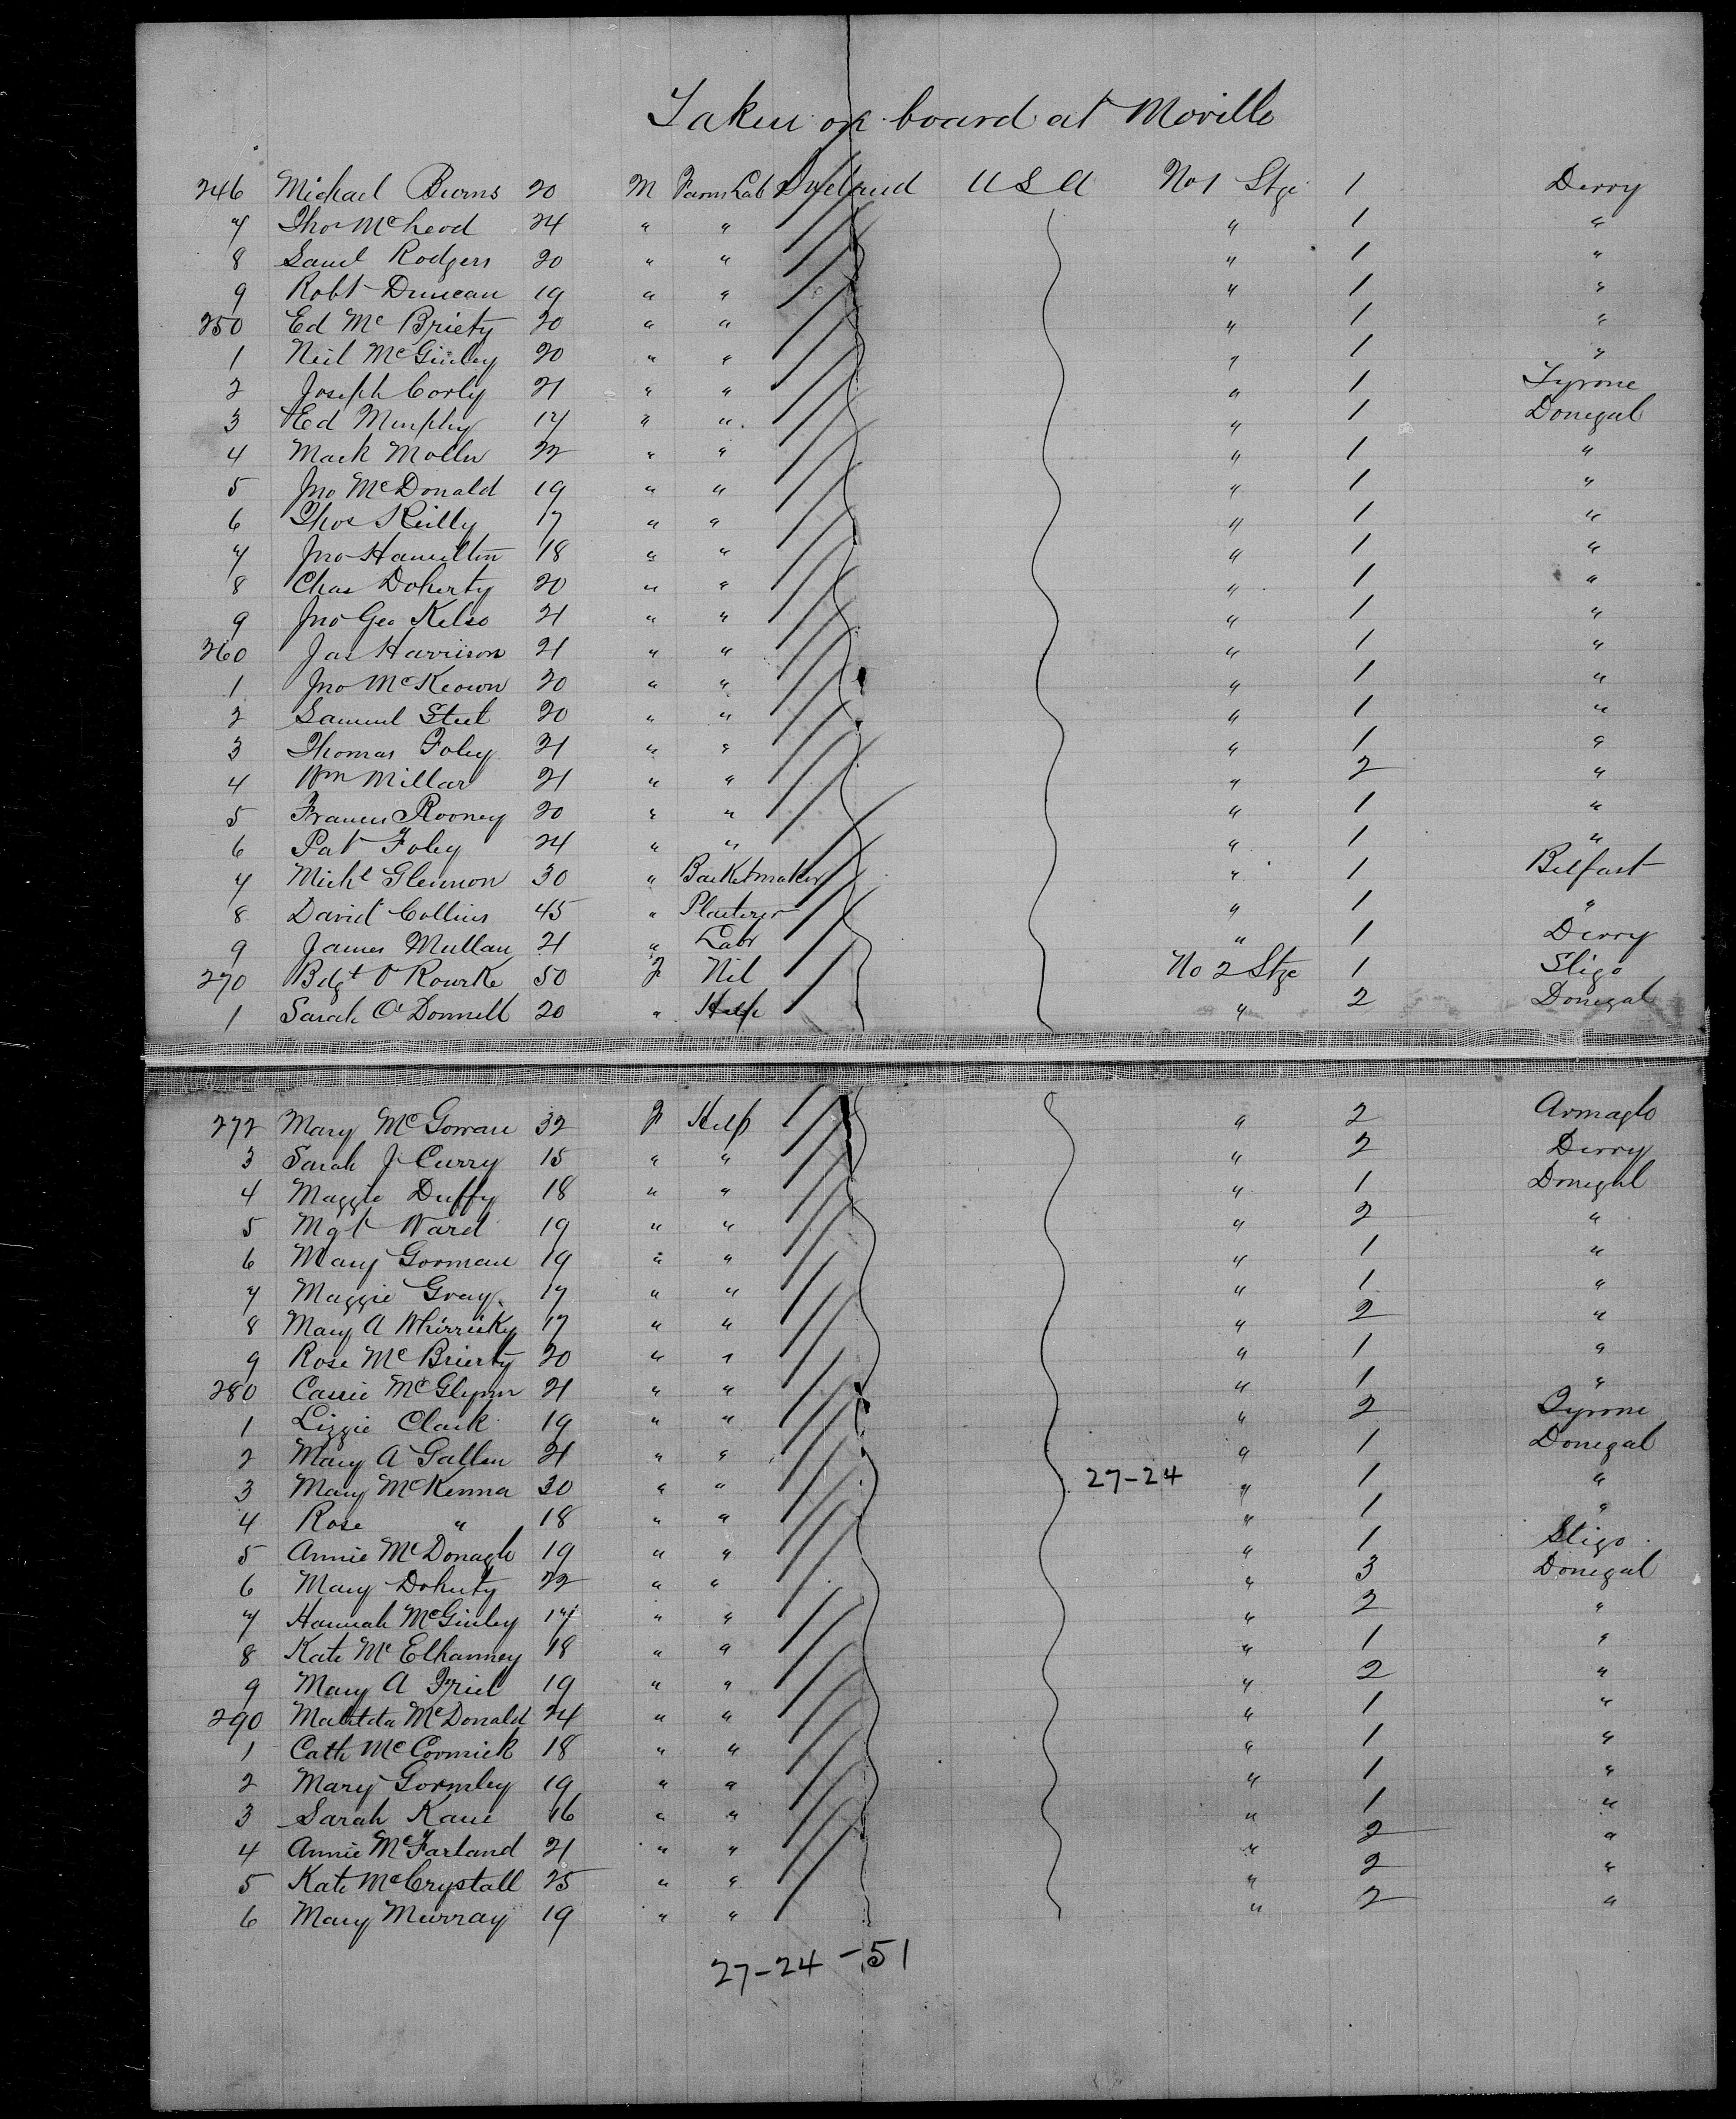 Taken on board at Moville
246 Michael Burns 20 M Farm Lab Ireland U S A No 1 Stge 1 Derry
7 Thos McLeod 24 " " " 1 "
8 Saml Rodgers 20 " " " 1 "
9 Robt Duncan 19 " " " 1 "
250 Ed Mc Briety 20 " " " 1 "
1 Neil McGinley 20 " " " 1 "
2 Joseph Corly 21 " " " 1 Tyrone
3 Ed Murphy 17 " " " 1 Donegal
4 Mack 22 " " " 1 "
5 Jno McDonald 19 " " " 1 "
6 Thos Reilly 17 " " " 1 "
7 Jno Hamilton 18 " " " 1 "
8 Chas Doherty 20 " " " 1 "
9 Jno Geo Kelso 21 " " " 1 "
260 Jas Harrison 21 " " " 1 "
1 Jno McKeown 20 " " " 1 "
2 Samuel Steel 20 " " " 1 "
3 Thomas Foley 21 " " " 1 "
4 Wm Millar 21 " " " 2 "
5 Francis Rooney 20 " " " 1 "
6 Pat Foley 24 " " " 1 "
7 Michl Glennon 30 " Basketmaker " 1 Belfast
8 David Collins 45 " Plasterer " 1 "
9 James Mullan 21 " Labr " 1 Derry
270 Bdgt O Rourke 50 F Nil No 2 Stge 1 Sligo
1 Sarah O'Donnell 20 " Help " 2 Donegal
272 Mary McGowan 32 F Help " 2 Armagh
3 Sarah J Curry 15 " " " 2 Derry
4 Maggie Duffy 18 " " " 1 Donegal
5 Mgt Ward 19 " " " 2 "
6 Mary Gorman 19 " " " 1 "
7 Maggie Gray 17 " " " 1 "
8 Mary A Whirrisky 17 " " " 2 "
9 Rose McBrierty 20 " " " 1 "
280 Cassie McGlynn 21 " " " 1 "
1 Lizzie Clark 19 " " " 2 Tyrone
2 Mary A Gallen 21 " " " 1 Donegal
3 Mary McKenna 20 " " 27-24 " 1 "
4 Rose " 18 " " " 1 "
5 Annie McDonagh 19 " " " 1 Sligo
6 Mary Doherty 22 " " " 3 Donegal
7 Hannah McGinley 17 " " " 2 "
8 Kate McElhanney 18 " " " 1 "
9 Mary A Friel 19 " " " 2 "
290 Matilda McDonald 24 " " " 1 "
1 Cath McCormick 18 " " " 1 "
2 Mary Gormley 19 " " " 1 "
3 Sarah Kane 16 " " " 1 "
4 Annie McFarland 21 " " " 2 "
5 Kate McCrystall 25 " " " 2 "
6 Mary Murray 19 " " " 2 "
27-24-51